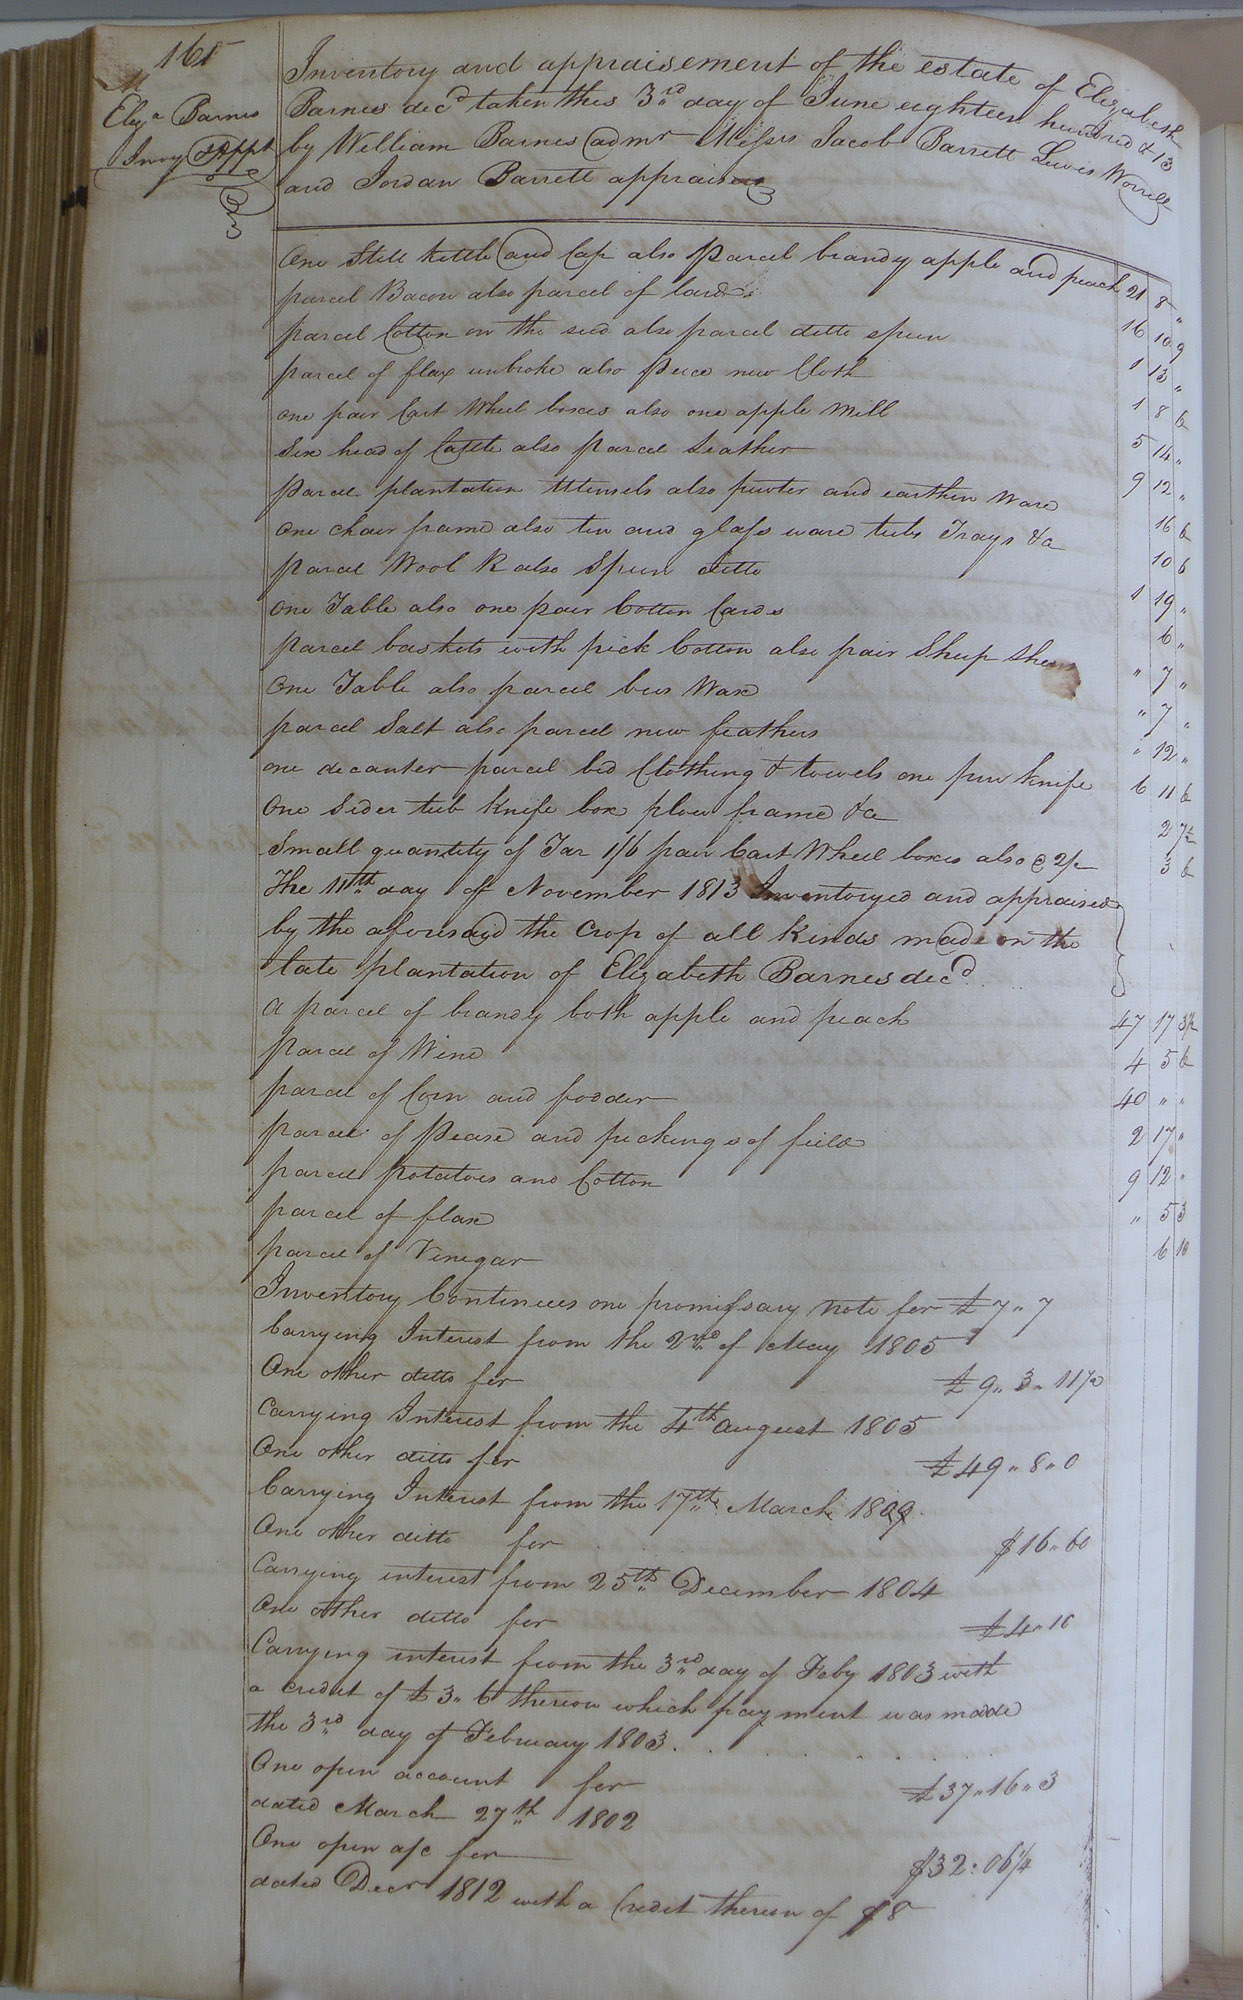 165
Eliza Barnes
Invy & Appt
Inventory and appraisement of the estate of Elizabeth
Barnes decd taken this 3rd day of June eighteen hundred & 13
by William Barnes admr Messrs Jacob Barrett Lewis Worrell
and Jordan Barrett appraisers
One Still Kettle and Cap also parcel brandy apple and peach 21 8 "
parcel Bacon also parcel of lard 16 10 9
parcel Cotton on the seed also parcel ditto spun 1 13 "
parcel of flax unbroke also Peice new Cloth 1 8 6
one pair Cart Wheel boxes also one apple Mill 5 14 "
Six head of Cattle also parcel Leather 9 12 "
parcel plantation Utensels also pewter and earthen Ware 16 6
One chair frame also tin and glass ware tubs Trays &c 10 6
parcel Wool R also Spun ditto 1 19 "
One Table also one pair Cotton Cards 6 "
parcel baskets with pick Cotton also pair Sheep shears " 7 "
One Table also parcel bees Wax " 7 "
parcel Salt also parcel new feathers " 12 "
one decanter parcel bed Clothing & towels one pen knife 6 11 6
One Sider tub Knife box plow frame &c 2 7½
Small quantity of Tar 1/6 pair Cart Wheel boxes also @ 2/ 3 6
The 11th day of November 1813 Inventoryed and appraised
by the aforesaid the Crop of all Kinds made on the
late plantation of Elizabeth Barnes decd
A parcel of brandy both apple and peach 47 17 3½
parcel of Wine 4 5 6
parcel of Corn and fodder 40 " "
parcel of Pease and pickings of field 2 17 "
parcel potatoes and Cotton 9 12 "
parcel of flax " 5 3
parcel of Vinegar 6 10
Inventory Continues one promissary note for £7"7
Carrying Interest from the 2nd of May 1805
One other ditto for £9"3"11½
Carrying Interest from the 4th August 1805
One other ditto for £49"8"0
Carrying Interest from the 17th March 1809
One other ditto for $16"60
Carrying interest from 25th December 1804
One other ditto for £4"16
Carrying interest from the 3rd day of Feby 1803 with
a credit of £3"6 thereon which payment was made
the 3rd day of February 1803.
One open account for £37"16"3
dated March 27th 1802
One open a/c for $32:06¼
dated Decr 1812 with a Credit thereon of $8